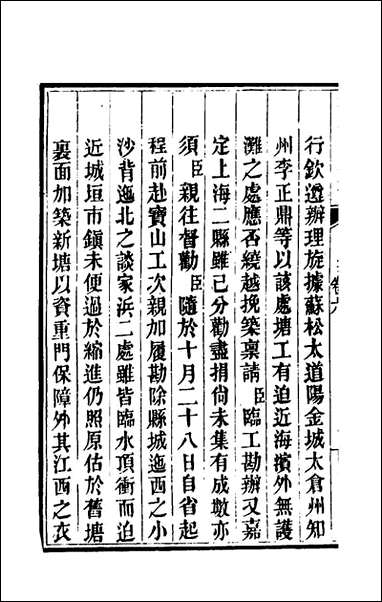 行欽遵辦理旋據蘇松太道陽金城太倉州知
州李正鼎等以該處塘工有迫近海濱外無護
灘之處應否繞越挽築稟請臣臨工勘辦又嘉
定上海二縣雖已分勸盡捐尙未集有成數亦
須臣親往督勸臣隨於十月二十八日自省起
程前赴寶山工次親加履勘除縣城迤西之小
沙背迤北之談家浜二處雖皆臨水頂衝而迫
近城垣市鎮未便過於縮進仍照原估於舊塘
裏面加築新塘以資重門保障外其江西之衣